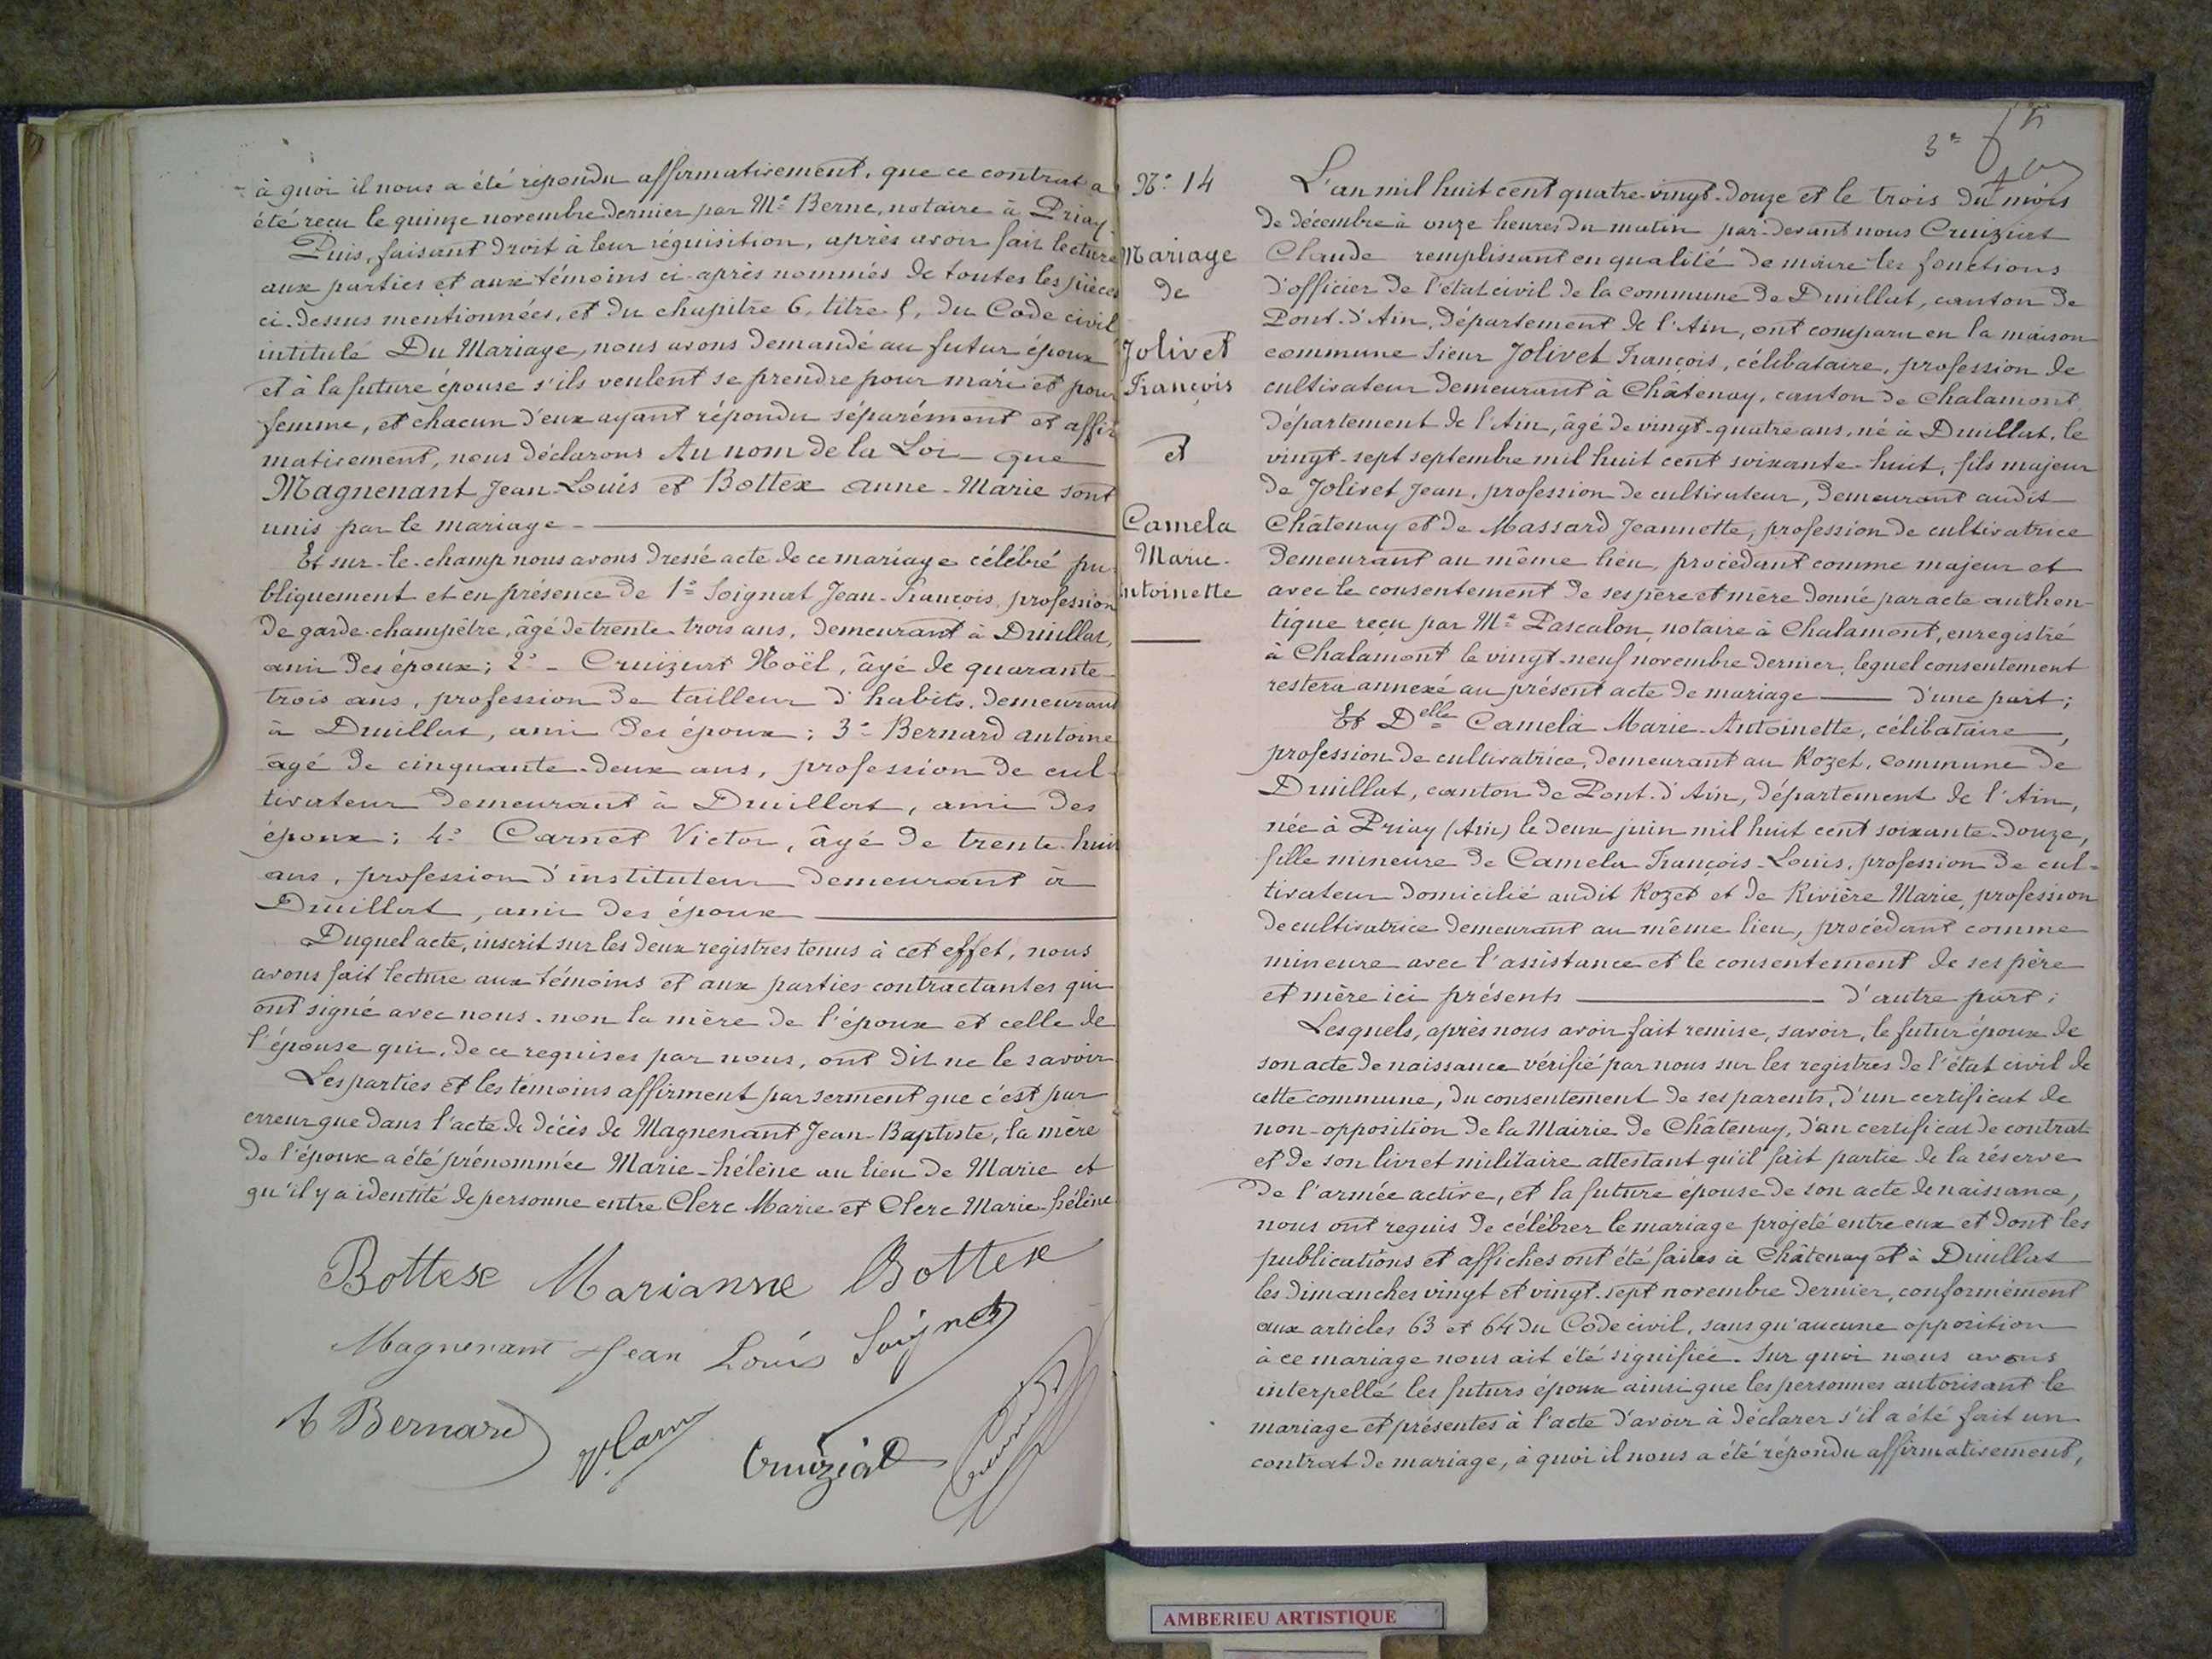 à quoi il nous a été répondu affirmativement, que ce contrat a
été reçu le quinze novembre dernier par Me Berne, notaire à Priay.
Puis, faisant droit à leur réquisition, après avoir fait lecture
aux parties et aux témoins ci-après nommés de toutes les pièces
ci-dessus mentionnées, et du chapitre 6, titre 5, du Code civil
intitulé Du Mariage, nous avons demandé au futur époux
et à la future épouse s'ils veulent se prendre pour mari et pour
femme, et chacun d'eux ayant répondu séparément et affir
mativement, nous déclarons Au nom de la Loi que
Magnenant Jean-Louis et Bottex Anne-Marie sont
unis par le mariage
Et sur-le-champ nous avons dressé acte de ce mariage célébré pu
bliquement et en présence de 1° Soignat Jean-François, profession
de garde-champêtre, âgé de trente-trois ans, demeurant à Druillat,
ami des époux; 2° - Cruiziat Noël, âgé de quarante
trois ans, profession de tailleur d'habits, demeurant
à Druillat, ami des époux; 3° Bernard antoine
âgé de cinquante-deux ans, profession de cul
tivateur demeurant à Druillat, ami des
époux; 4° Carnet Victor, âgé de trente-huit
ans, profession d'instituteur demeurant à
Druillat, ami des époux
Duquel acte, inscrit sur les deux registres tenus à cet effet, nous
avons fait lecture aux témoins et aux parties contractantes qui
ont signé avec nous, non la mère de l'époux et celle de
l'épouse qui, de ce requises par nous, ont dit ne le savoir
Les parties et les témoins affirment par serment que c'est par
erreur que dans l'acte de décès de Magnenant Jean-Baptiste, la mère
de l'époux a été prénommée Marie-hélène au lieu de Marie et
qu'il y a identité de personne entre Clerc Marie et Clerc Marie-hélène
Bottex Marianne Bottex
Magnenant Jean Louis Soignat
A Bernard Cruziat
N° 14
Mariage
de
Jolivet
François
et
Camela
Marie-
ntoinette
L'an mil huit cent quatre-vingt-douze et le trois du mois
de décembre à onze heures du matin par-devant nous Cruiziat
Claude remplissant en qualité de maire les fonctions
d'officier de l'état civil de la commune de Druillat, canton de
Pont-d'Ain, département de l'Ain, ont comparu en la maison
commune sieur Jolivet François, célibataire, profession de
cultivateur demeurant à Châtenay, canton de Chalamont
département de l'Ain, âgé de vingt-quatre ans, né à Druillat, le
vingt-sept septembre mil huit cent soixante-huit, fils majeur
de Jolivet Jean, profession de cultivateur, demeurant audit
Châtenay et de Massard Jeannette, profession de cultivatrice
demeurant au même lieu, procédant comme majeur et
avec le consentement de ses père et mère donné par acte authen-
tique reçu par Me Pascalon, notaire à Chalamont, enregistré
à Chalamont le vingt-neuf novembre dernier, lequel consentement
restera annexé au présent acte de mariage d'une part;
Et Delle Camela Marie-Antoinette, célibataire,
profession de cultivatrice, demeurant au Rozet, commune de
Druillat, canton de Pont-d'Ain, département de l'Ain,
née à Priay (Ain) le deux juin mil huit cent soixante-douze,
fille mineure de Camela François-Louis, profession de cul-
tivateur domicilié audit Rozet et de Rivière Marie, profession
de cultivatrice demeurant au même lieu, procédant comme
mineure avec l'assistance et le consentement de ses père
et mère ici présents d'autre part;
Lesquels, après nous avoir fait remise, savoir, le futur époux de
son acte de naissance vérifié par nous sur les registres de l'état civil de
cette commune, du consentement de ses parents, d'un certificat de
non-opposition de la Mairie de Châtenay, d'un certificat de contrat
et de son livret militaire attestant qu'il fait partie de la réserve
de l'armée active, et la future épouse de son acte de naissance,
nous ont requis de célébrer le mariage projeté entre eux et dont les
publications et affiches ont été faites à Châtenay et à Druillat
les dimanches vingt et vingt-sept novembre dernier, conformément
aux articles 63 et 64 du Code civil, sans qu'aucune opposition
à ce mariage nous ait été signifiée. Sur quoi nous avons
interpellé les futurs époux ainsi que les personnes autorisant le
mariage et présentes à l'acte d'avoir à déclarer s'il a été fait un
contrat de mariage, à quoi il nous a été répondu affirmativement,
AMBERIEU ARTISTIQUE